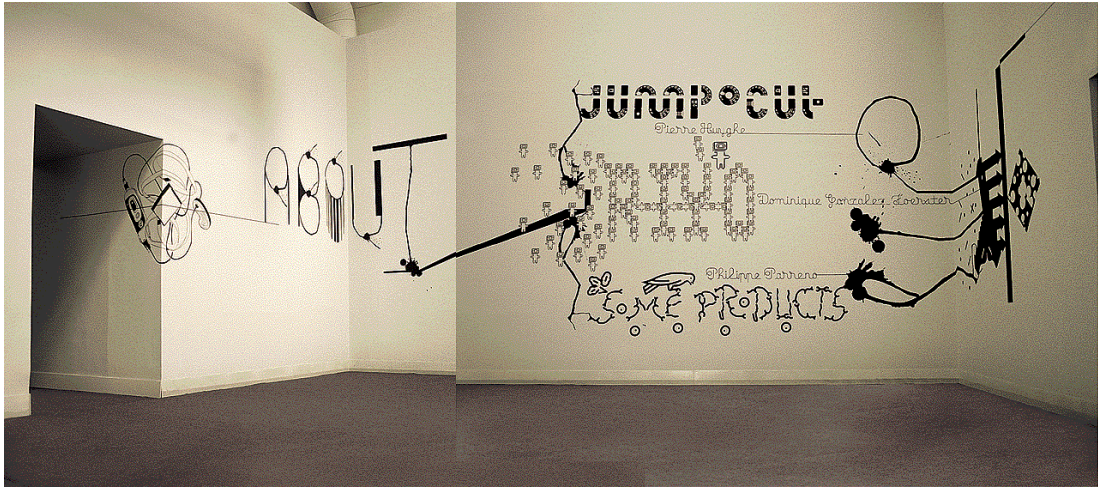 ABOUT
JUMP CUT
Pierre Huyghe
Dominique Gonzalez-Foerster
Philippe Parreno
SOME PRODUCTS